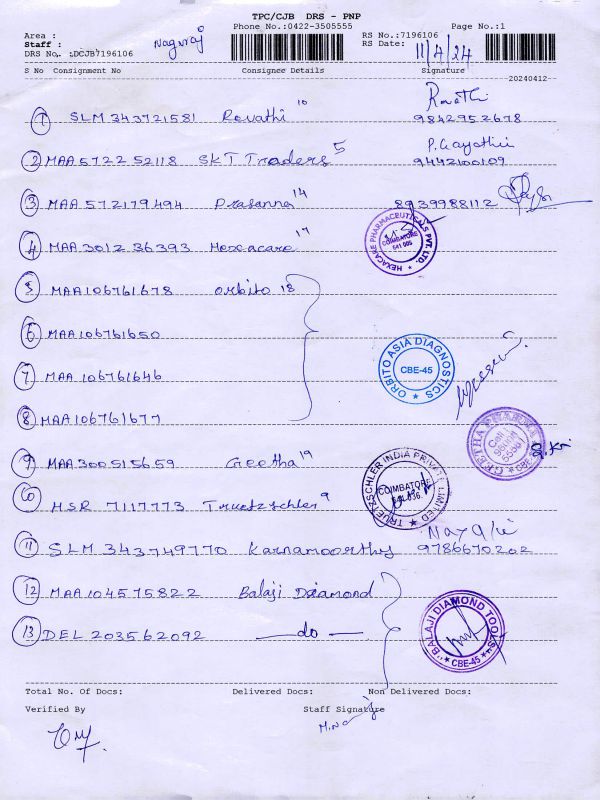 TPC/CJB DRS - PNP
Phone No.:0422-3505555
Area :
Staff : Nagaraj
DRS No. :DCJB7196106
RS No.:7196106
RS Date: 11/4/24
Page No.:1
S No Consignment No Consignee Details Signature
20240412
1 SLM 343721581 Revathi 10 Revathi 9842952678
2 MAA 572252118 SKT Traders 5 P. Gayathri 9442100109
3 MAA 572179494 Prasanna 14 8939988112
4 MAA 301236393 Hexacare 17
HEXACARE PHARMACEUTICALS PVT. LTD. COIMBATORE 641 005
5 MAA 106761678 Orbito 18
6 MAA 106761650
7 MAA 106761646
ORBITO ASIA DIAGNOSTICS CBE-45
8 MAA 106761677
9 MAA 300515659 Geetha 19
GEETHA Cell: CBE
10 HSR 7117773 Truetzschler 9
TRUETZSCHLER INDIA PRIVATE LIMITED COIMBATORE
11 SLM 343749770 Karnamoorthy 9786670202
12 MAA 104575822 Balaji Diamond
13 DEL 203562092 do
"BALAJI DIAMOND TOOLS" CBE-45
Total No. Of Docs: Delivered Docs: Non Delivered Docs:
Verified By Staff Signature